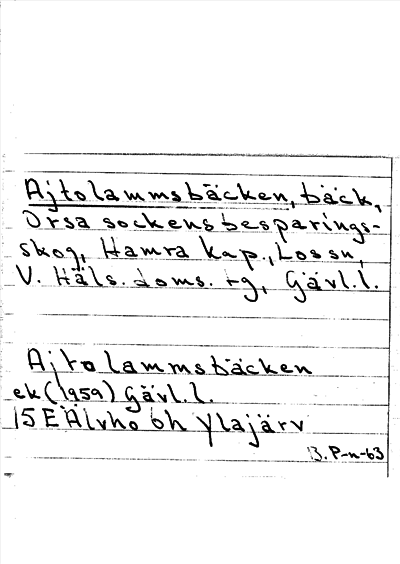 Ajtolammsbäcken, bäck,
Orsa sockens besparings-
skog, Hamra kap., Los sn,
V. Häls. doms. tg, Gävl.l.
Ajtolammsbäcken
ek (1959) Gävl.l.
15E Älvho 6h Ylajärv
B. P-n-63